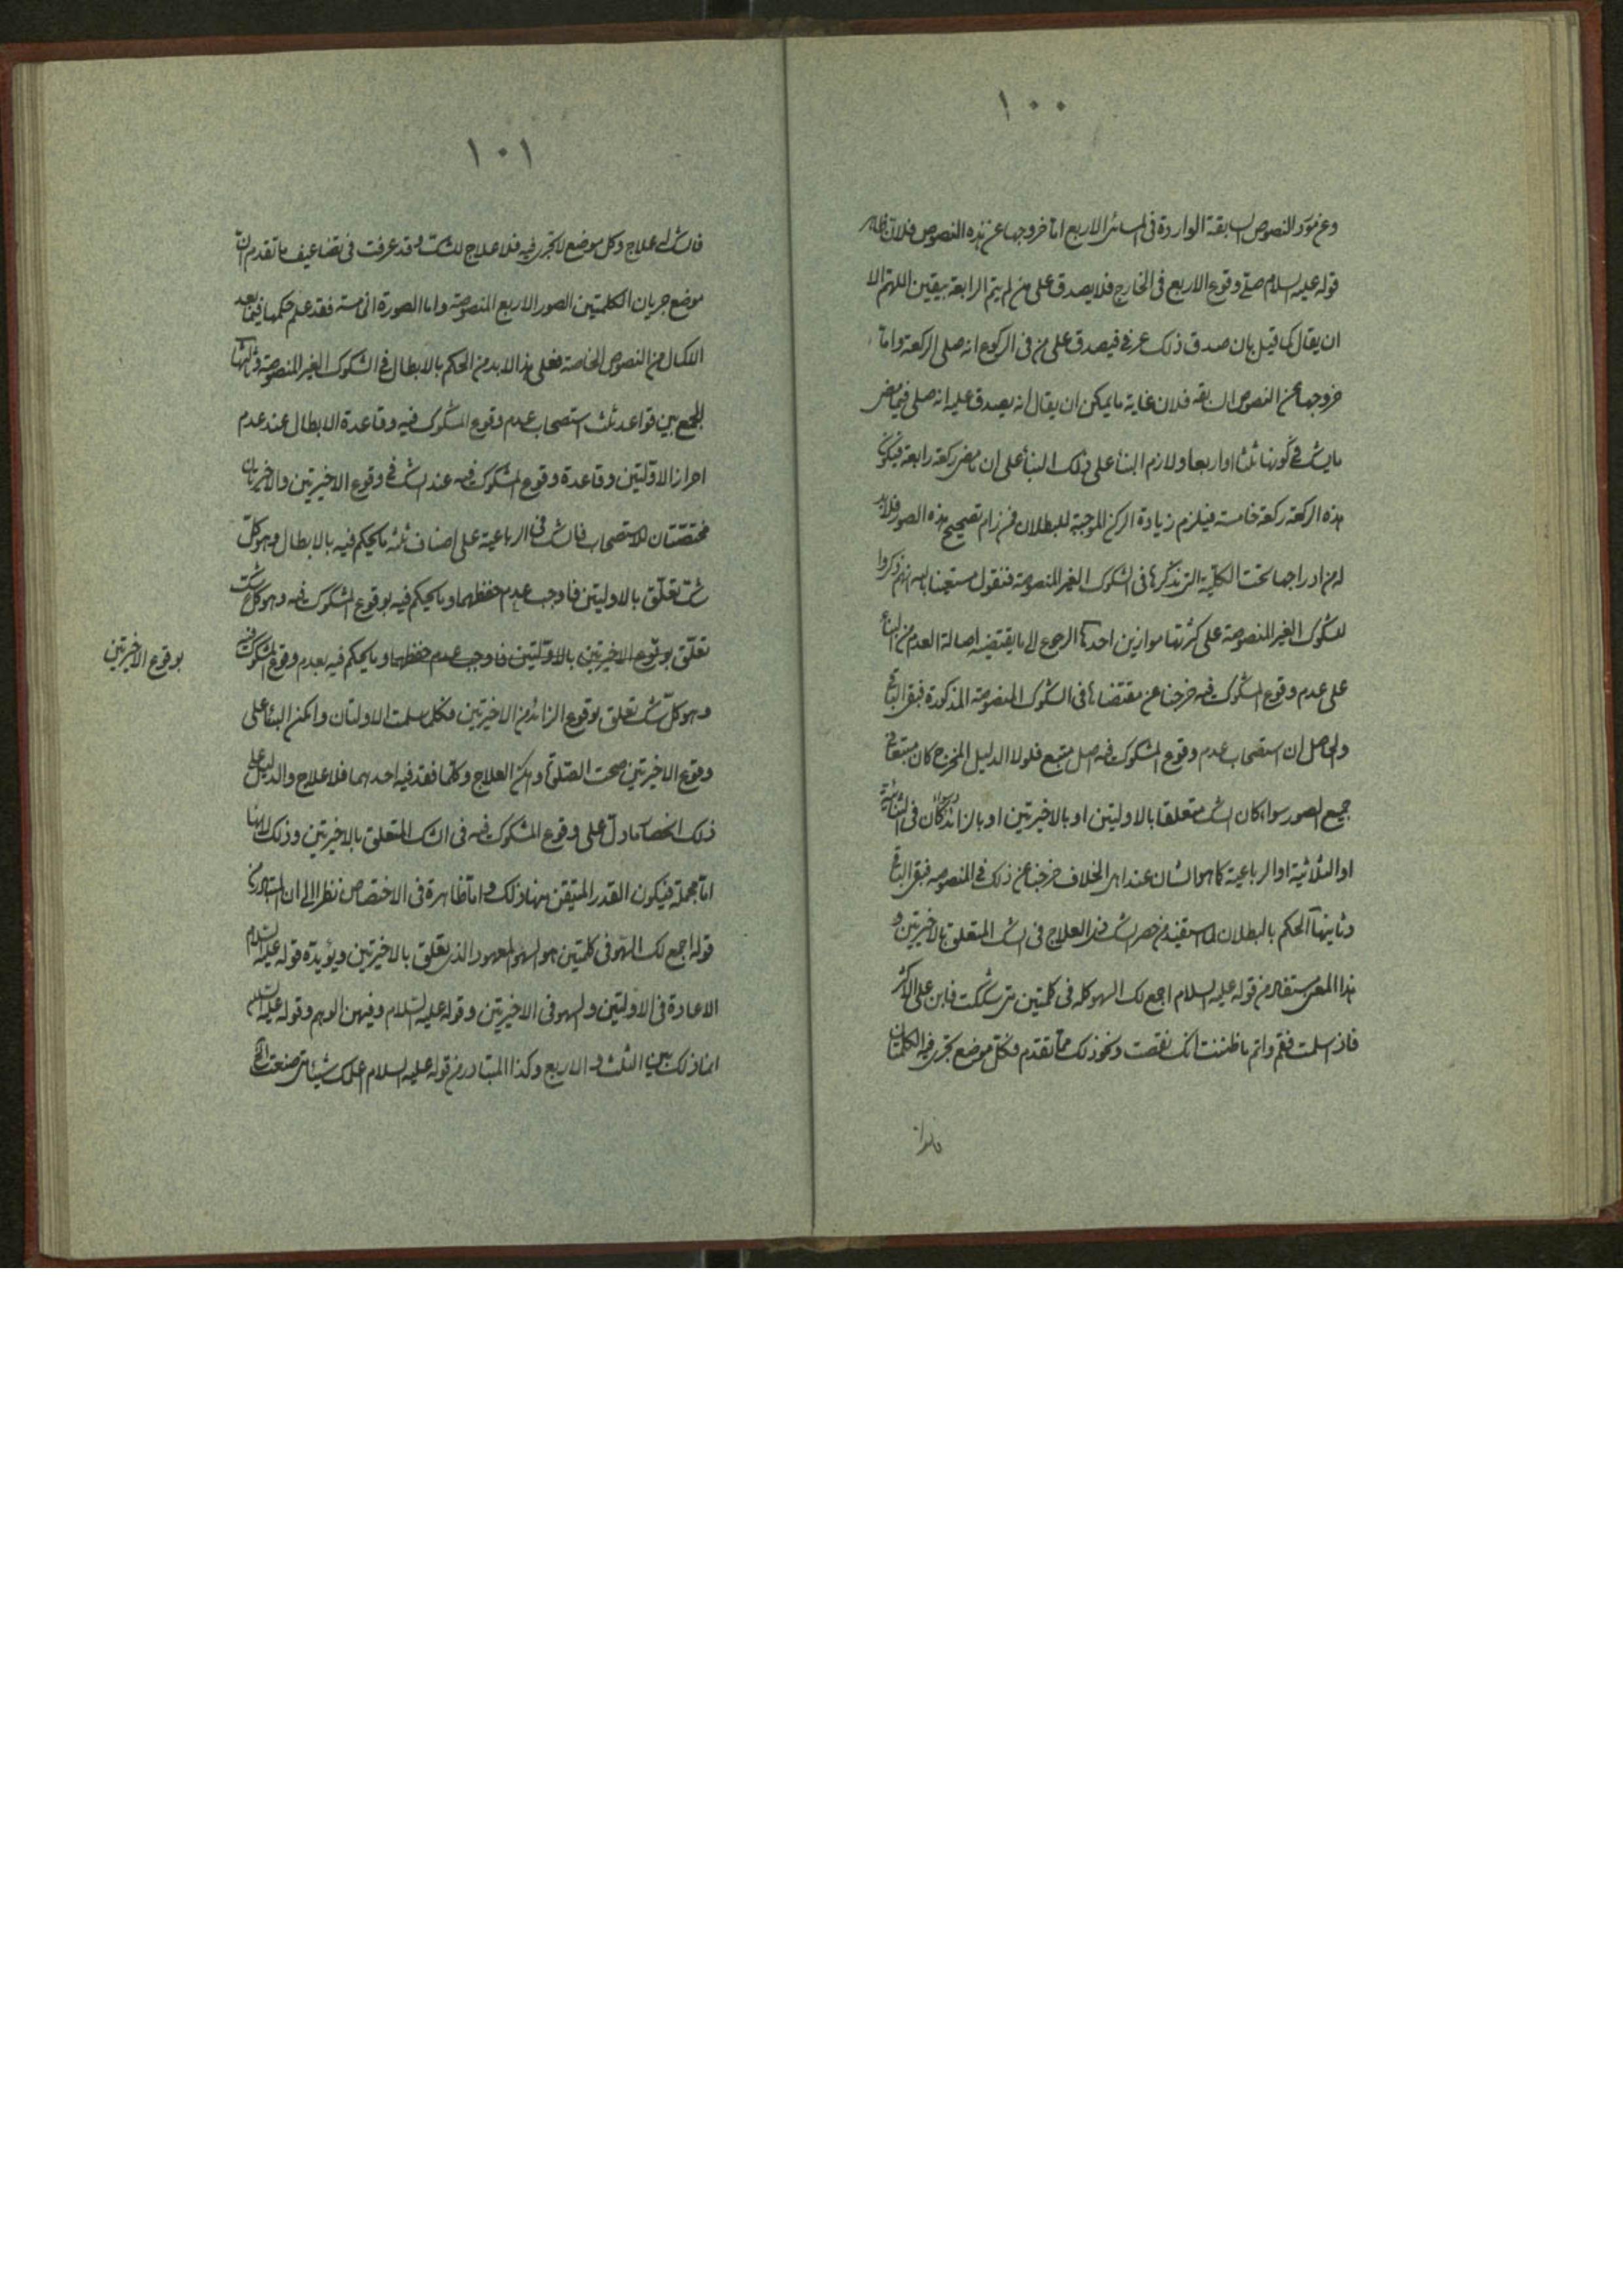 ١٠٠
وعن مورد النصوص السابقة الواردة فى المسائل الاربع اما خروجها عن هذه النصوص فلان ظاهر
قوله عليه السلام صلى وقوع الاربع فى الخارج فلا يصدق على من لم يتم الرابعة بيقين اللهم الا
ان يقال كما قيل بان صدق ذلك عرفى فيصدق على من فى الركوع انه صلى الركعة واما
خروجها عن النصوص السابقة فلان غاية ما يمكن ان يقال انه يصدق عليه انه صلى فيما مضى
ما يشك فى كونها ثلثا او اربعا ولازم البناء على ذلك البناء على ان ما مضى ركعة رابعة فيكون
هذه الركعة ركعة خامسة فيلزم زيادة الركن الموجبة للبطلان فمن رام تصحيح هذه الصور فلابد
له من ادراجها تحت الكلية التى نذكرها فى الشكوك الغير المنصوصة فنقول مستعينا بالله انهم ذكروا
للشكوك الغير المنصوصة على كثرتها موازين احدها الرجوع الى ما يقتضيه اصالة العدم من البناء
على عدم وقوع المشكوك فيه خرجنا عن مقتضاها فى الشكوك المنصوصة المذكورة فبقى الباقى
والحاصل ان استصحاب عدم وقوع المشكوك فيه اصل متبع فلولا الدليل المخرج كان متبعا فى
جميع الصور سواء كان الشك متعلقا بالاوليتين او بالاخيرتين او بالزائد وسواء كان فى الثنائية
او الثلاثية او الرباعية كما هو الشان عند اهل الخلاف خرجنا عن ذلك فى المنصوصه فبقى الباقى
وثانيها الحكم بالبطلان لما استفيد من حصر الشك فى العلاج فى الشك المتعلق بالاخيرتين و
هذا المعنى مستفاد من قوله عليه السلام اجمع لك السهو كله فى كلمتين متى شككت فابن على الاكثر
فاذا سلمت فقم واتم ما ظننت انك نقصت ونحو ذلك مما تقدم فكل موضع يجرى فيه الكلمتان
فله ا
١٠١
فالشك له علاج وكل موضع لا تجرى فيه فلا علاج للشك وقد عرفت فى تضاعيف ما تقدم ان
موضع جريان الكلمتين الصور الاربع المنصوصة واما الصورة الخامسة فقد علم حكمها فيما بعد
الاكمال من النصوص الخاصة فعلى هذا لابد من الحكم بالابطال فى الشكوك الغير المنصوصة وثالثها
الجمع بين قواعد ثلث استصحاب عدم وقوع المشكوك فيه وقاعدة الابطال عند عدم
احراز الاوّلتين وقاعدة وقوع المشكوك فيه عند الشك فى وقوع الاخيرتين والاخيرتان
مختصتان للاستصحاب فالشك فى الرباعية على اصناف ثلثه ما يحكم فيه بالابطال وهو كل
شك تعلّق بالاوليتين فاوجب عدم حفظهما وما يحكم فيه بوقوع المشكوك فيه وهو كل شك
تعلّق بوقوع الاخيرتين بالاوّلتين فاوجب عدم حفظهما وما يحكم فيه بعدم وقوع المشكوك فيه
بوقوع الاخيرتين
وهو كل شك تعلق بوقوع الزائد من الاخيرتين فكلما سلمت الاولتان وامكن البناء على
وقوع الاخيرتين صحت الصلوة وامكن العلاج وكلما فقد فيه احدهما فلا علاج والدليل على
ذلك اختصاص ما دل على وقوع المشكوك فيه فى الشك المتعلق بالاخيرتين وذلك لانها
اما مجملة فيكون القدر المتيقن منها ذلك واما ظاهرة فى الاختصاص نظرا الى ان المتبادر من
قوله اجمع لك السهو فى كلمتين هو السهو المعهود الذى تعلق بالاخيرتين ويؤيده قوله عليه السلام
الاعادة فى الاولتين والسهو فى الاخيرتين وقوله عليه السلام وفيهن الوهم وقوله عليه السلام
انما ذلك بين الثلث والاربع وكذا المتبادر من قوله عليه السلام اعلمك شيئا متى صنعت الخ